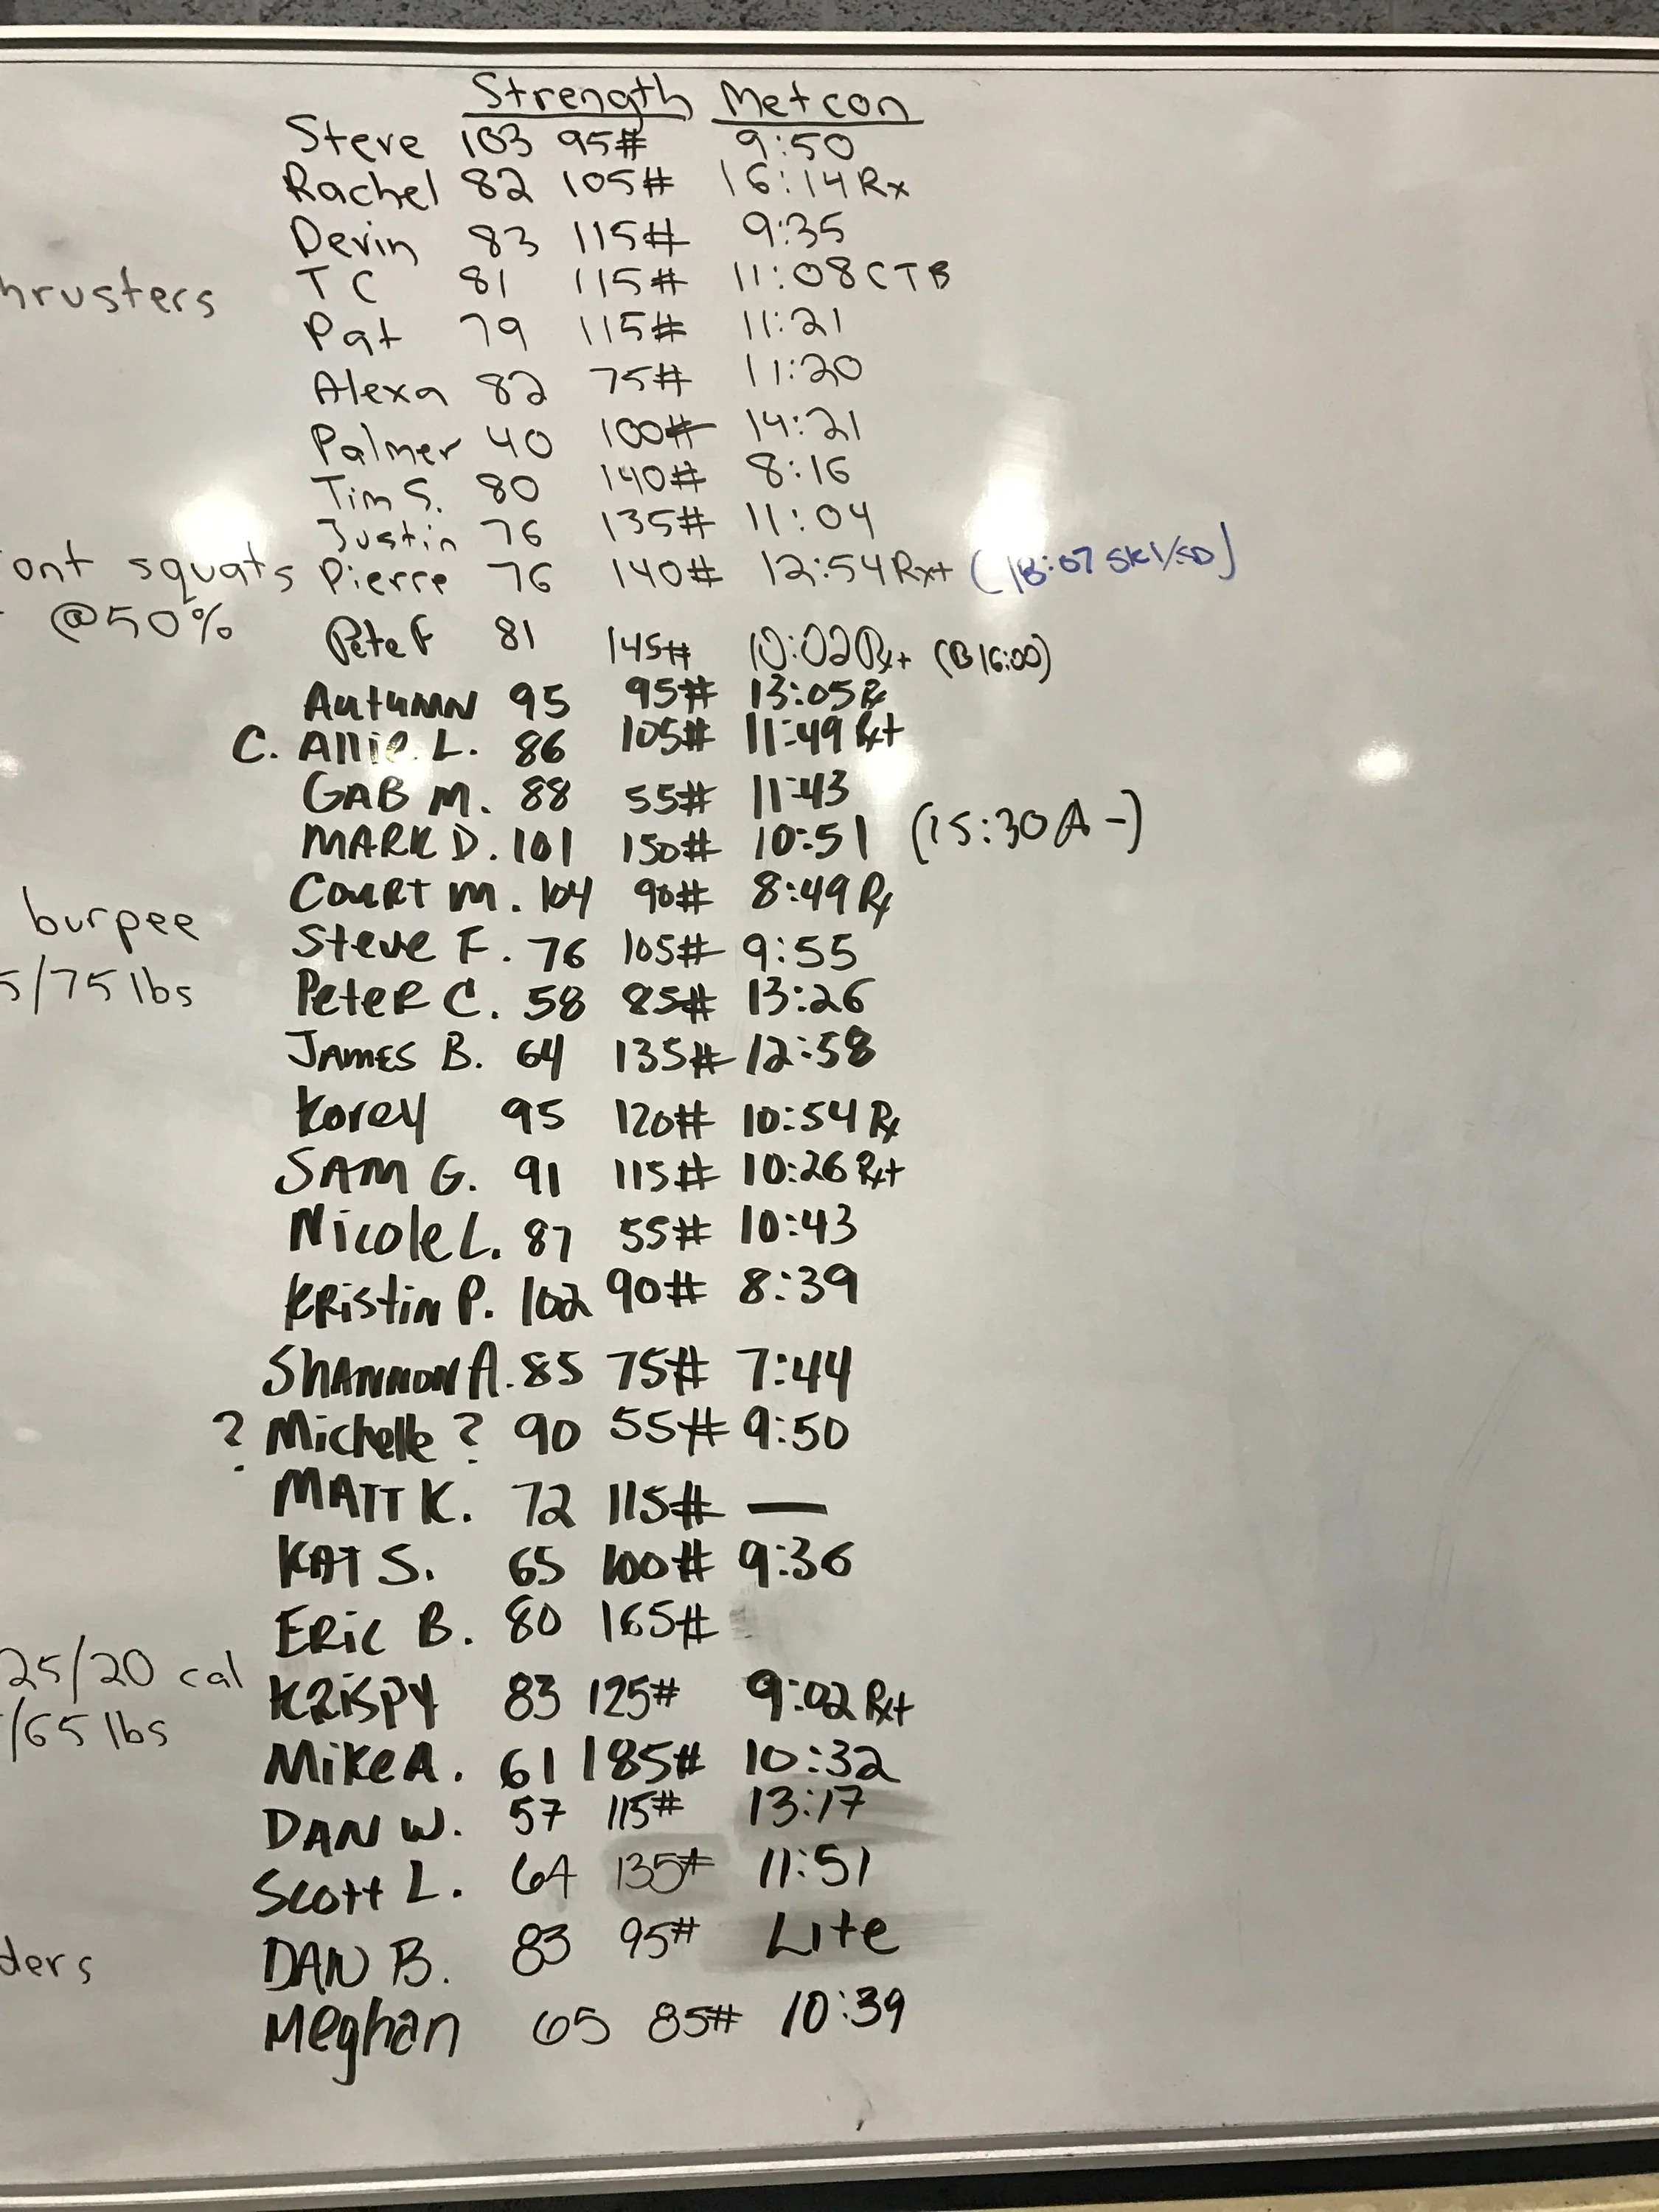 Strength Metcon
Steve 103 95# 9:50
Rachel 82 105# 16:14 Rx
Devin 83 115# 9:35
TC 81 115# 11:08 CTB
hrusters
Pat 79 115# 11:21
Alexa 82 75# 11:20
Palmer 40 100# 14:21
Tim S. 80 140# 8:16
Justin 76 135# 11:04
ont squats Pierre 76 140# 12:54 Rx+
@50%
Pete F 81 145# 10:02 Rx+ (B 16:00)
Autumn 95 95# 13:05 Rx
C. Allie L. 86 105# 11:49 Rx+
GAB M. 88 55# 11:43
MARK D. 101 150# 10:51 (15:30 A-)
Court M. 104 90# 8:49 Rx
burpee
Steve F. 76 105# 9:55
5/75 lbs
Peter C. 58 85# 13:26
James B. 64 135# 12:58
Korey 95 120# 10:54 Rx
SAM G. 91 115# 10:26 Rx+
Nicole L. 87 55# 10:43
Kristin P. 102 90# 8:39
Shannon A. 85 75# 7:44
? Michelle ? 90 55# 9:50
MATT K. 72 115# —
KAT S. 65 100# 9:36
Eric B. 80 165#
25/20 cal
Krispy 83 125# 9:02 Rx+
/65 lbs
Mike A. 61 185# 10:32
DAN W. 57 115# 13:17
Scott L. 64 135# 11:51
DAN B. 83 95# Lite
ders
Meghan 65 85# 10:39